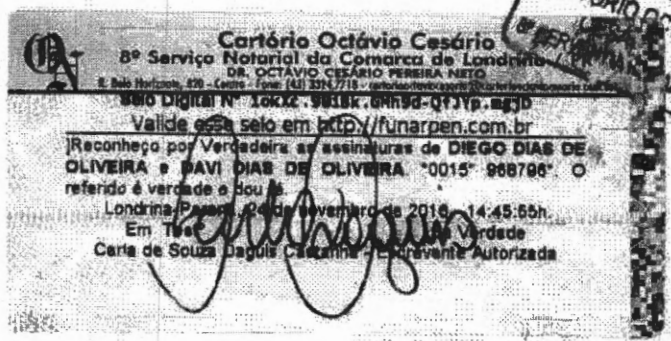 Cartório Octávio Cesário
8º Serviço Notarial da Comarca de Londrina
DR. OCTÁVIO CESÁRIO PEREIRA NETO
R. Belo Horizonte, 820 - Centro - Fone: (43) 3324.7718 -
Selo Digital Nº 1okXZ . 9B1Bk . GMh9d-QfJYp . mgjD
Valide esse selo em http://funarpen.com.br
]Reconheço por Verdadeira as assinaturas de DIEGO DIAS DE
OLIVEIRA e DAVI DIAS DE OLIVEIRA. *0015* 968796*. O
referido é verdade e dou fé.
Londrina-Paraná, 24 de novembro de 2016 - 14:45:55h.
Em Verdade
Carla de Souza Daguis Castanha - Escrevente Autorizada